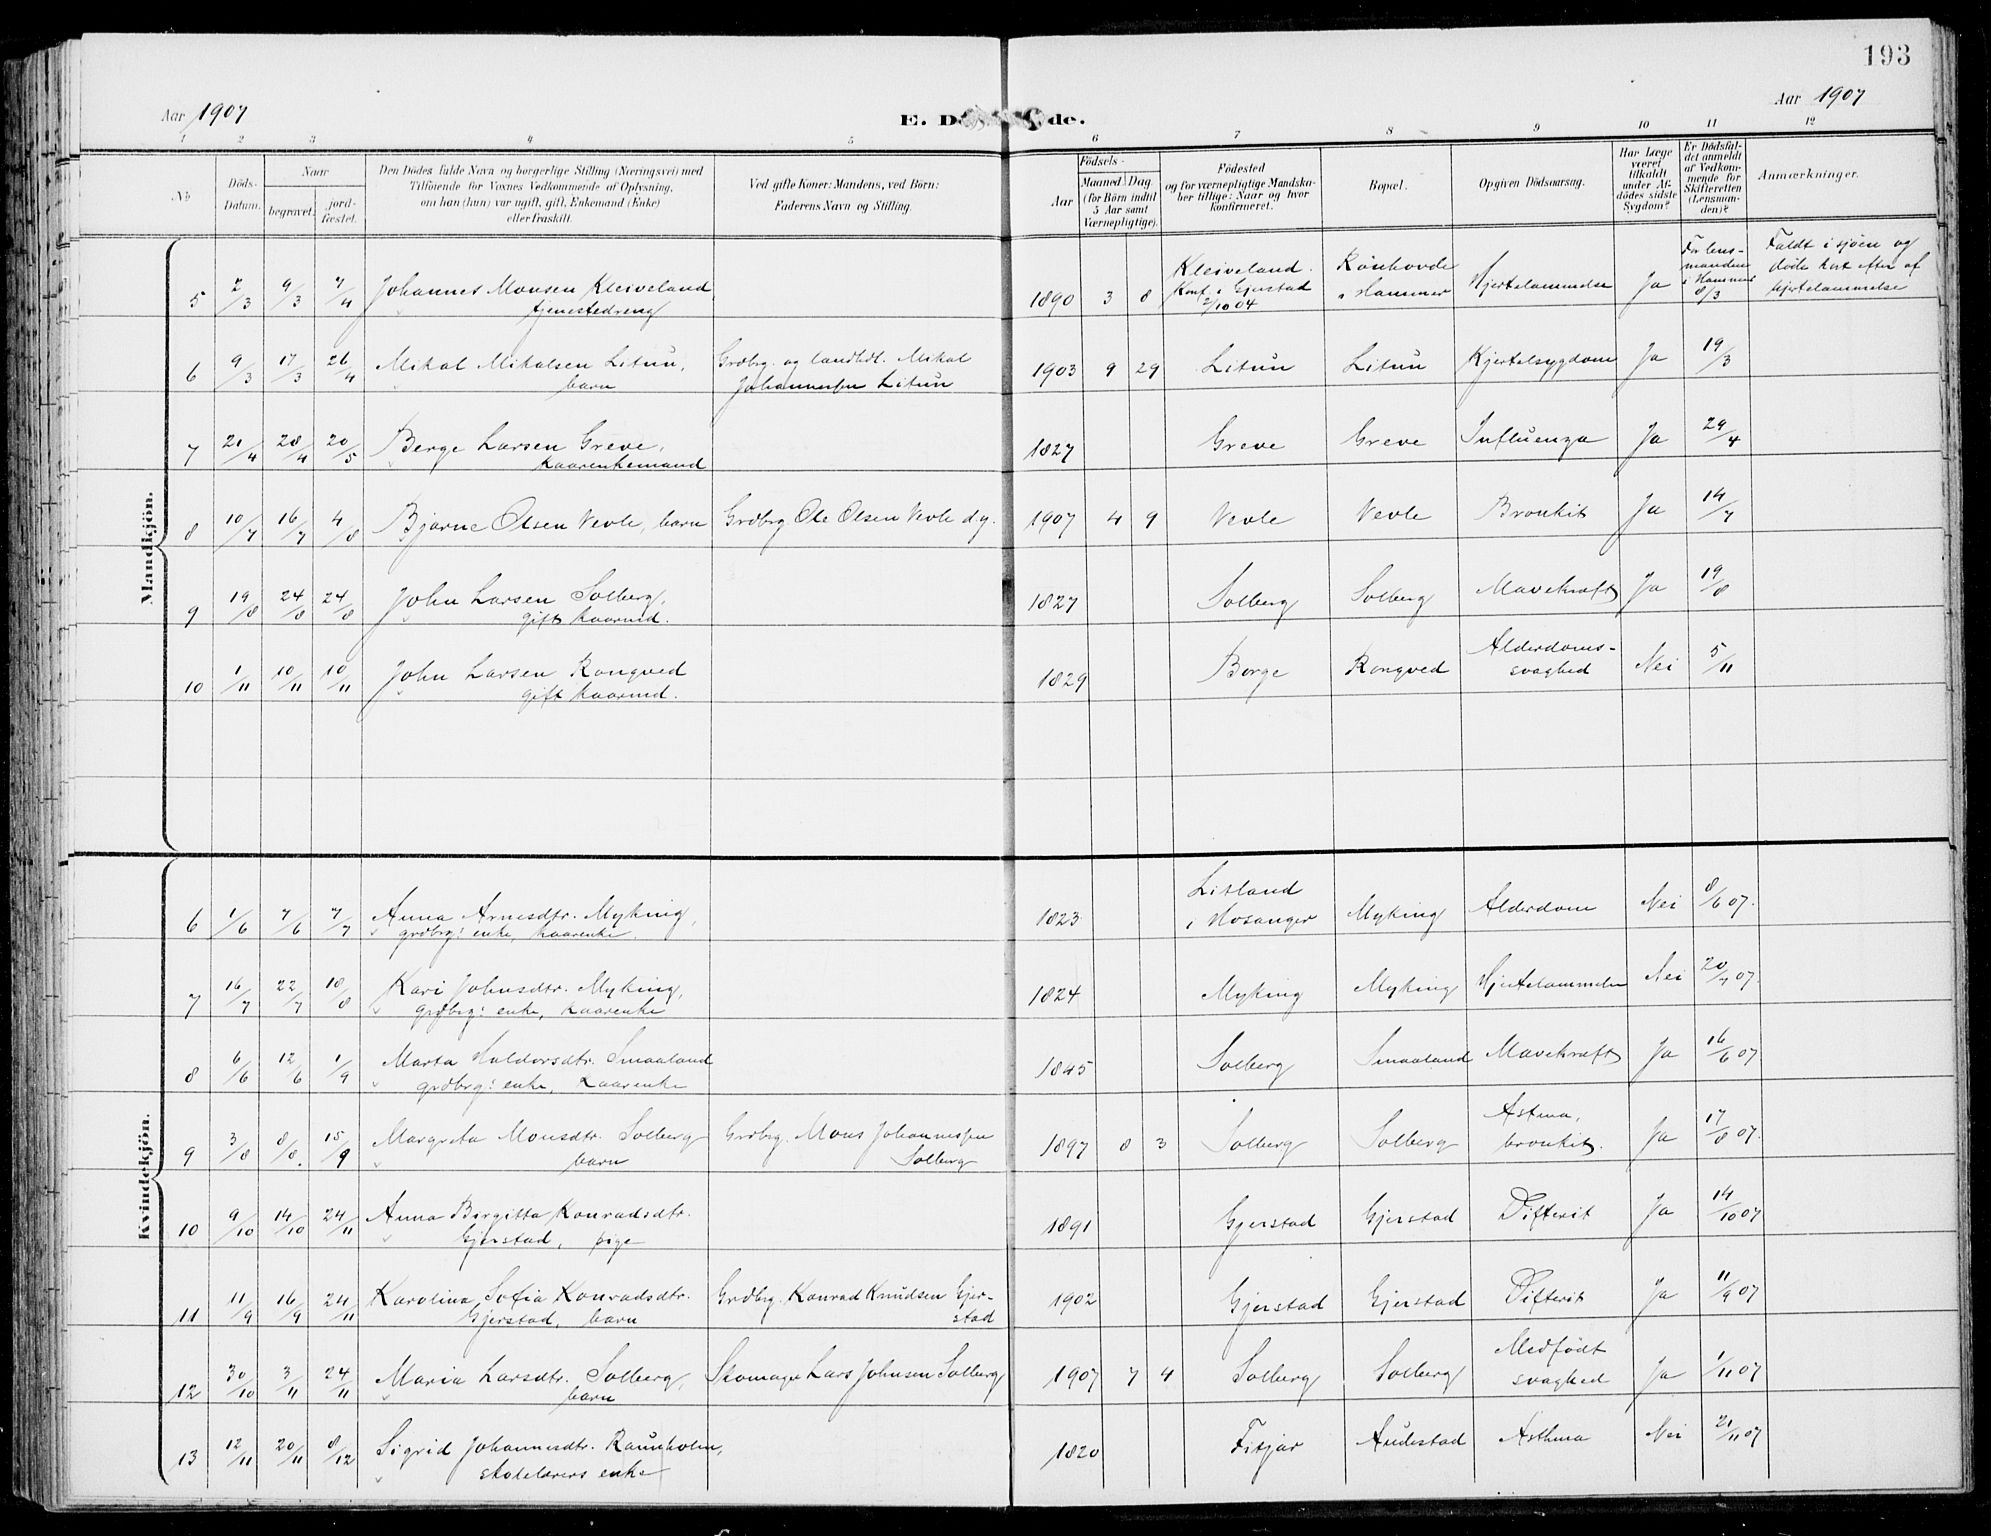 193
Aar 1907
E. Dö de.
Aar 1907
1 2 3 4 5 6 7 8 9 10 11 12
No
Döds-Datum.
Naar
begravet.
jord-fæstet.
Den Dödes fulde Navn og borgerlige Stilling (Næringsvei) med
Tilföiende for Voxnes Vedkommende af Oplysning,
om han (hun) var ugift, gift, Enkemand (Enke)
eller fraskilt.
Ved gifte Koner: Mandens, ved Börn:
Faderens Navn og Stilling.
Födsels-
Aar
Maaned Dag
(for Börn indtil
5 Aar samt
Værnepligtige).
Födested
og for værnepligtige Mandska-
ber tillige: Naar og hvor
konfirmeret.
Bopæl.
Opgiven Dödsaarsag.
Har Læge
været
tilkaldt
under Af-
dödes sidste
Sygdom?
Er Dödsfal-
det anmeldt
af Vedkom-
mende for
Skifteretten
(Lensman-
den)?
Anmærkninger.
Mandkjön.
5 2/3 9/3 7/4 Johannes Monsen Kleiveland tjenestedreng 1890 3 8 Kleiveland. Konf. i Gjerstad 2/10 04 Rönhovde i Hammer Hjertelammelse Ja For lens-manden i Hammer 8/3 Faldt i sjöen og döde kort efter af hjertelammelse
6 9/3 17/3 26/4 Mikal Mikalsen Litun, barn Grdbrg. og landhdl. Mikal Johannessen Litun 1903 9 29 Litun Litun Kjertelsygdom Ja 19/3
7 21/4 28/4 20/5 Berge Larsen Greve, kaarenkemand 1827 Greve Greve Influenza Ja 29/4
8 10/7 16/7 4/8 Bjarne Olsen Vevle, barn Grdbrg Ole Olsen Vevle d.y. 1907 4 9 Vevle Vevle Bronkit Ja 14/7
9 19/8 24/8 24/8 John Larsen Solberg, gift kaarmd. 1827 Solberg Solberg Mavekræft Ja 19/8
10 1/11 10/11 10/11 John Larsen Rongved gift kaarmd. 1829 Borge Rongved Alderdoms-svaghed Nei 5/11
Kvindekjön.
6 1/6 7/6 7/7 Anna Arnesdtr. Myking, grdbrg: enke, kaarenke. 1823 Litland i Hosanger Myking Alderdom Nei 8/6 07.
7 16/7 22/7 18/8 Kari Johnsdtr. Myking, grdbrg: enke, kaarenke 1824 Myking Myking Hjertelammelse Nei 20/7 07.
8 6/6 12/6 1/9 Marta Haldorsdtr. Smaaland grdbrg: enke, kaarenke 1845 Solberg Smaaland Mavekræft Ja 16/6 07
9 3/8 8/8. 15/9 Margreta Monsdtr. Solberg barn Grdbrg. Mons Johannessen Solberg 1897 8 3 Solberg Solberg Astma, bronkit. Ja 17/8 07.
10 9/10 14/10 24/11 Anna Birgitta Konradsdtr. Gjerstad, pige 1891 Gjerstad Gjerstad Difterit Ja 14/10 07
11 11/9 16/9 24/11 Karolina Sofia Konradsdtr. Gjerstad, barn Grdbrg. Konrad Knudsen Gjer-stad 1902 Gjerstad Gjerstad Difterit Ja 11/9 07
12 30/10 3/11 24/11 Maria Larsdtr. Solberg, barn Skomager Lars Johnsen Solberg 1907 7 4 Solberg Solberg Medfödt svaghed Ja 1/11 07
13 12/11 20/11 8/12 Sigrid Johannesdtr. Raunholm, skolelærers enke 1820 Fitjar Audestad Asthma Nei 21/11 07